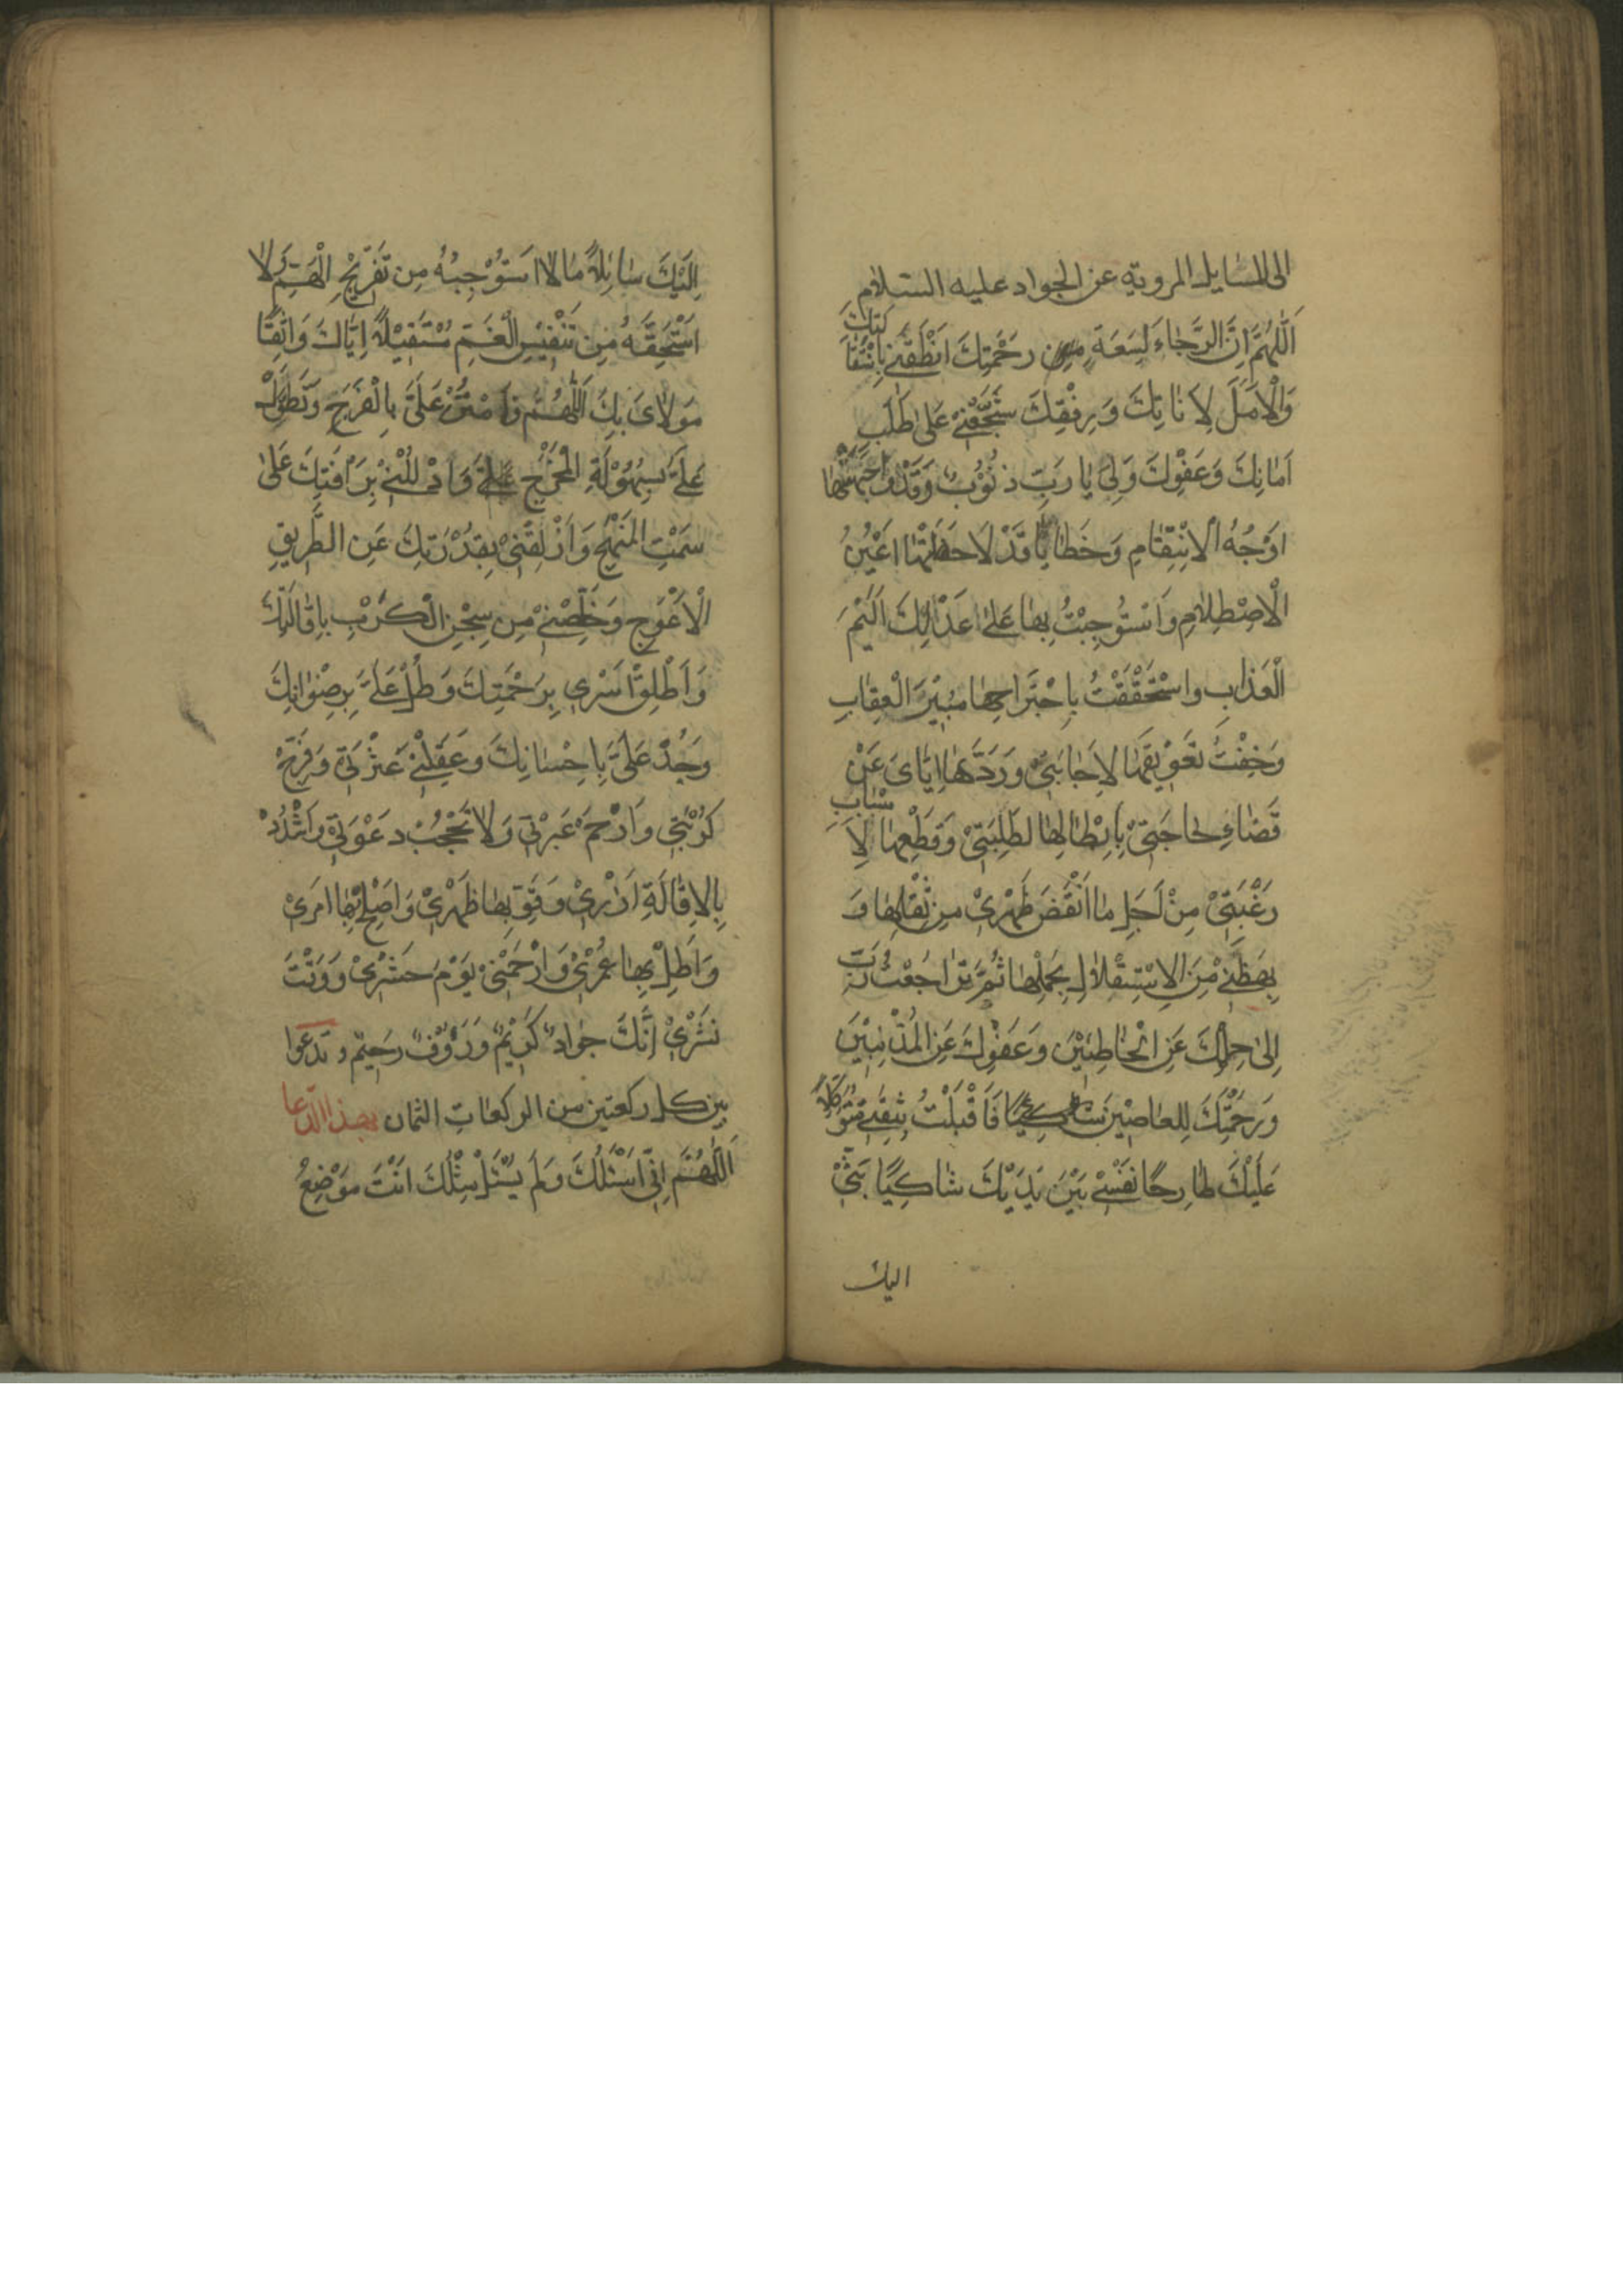 الى المسايل المروية عن الجواد عليه السلام
اَللّٰهُمَّ اِنَّ الرَّجٰاءَ لِسَعَةِ رَحْمَتِكَ اَنْطَقَنِي بِاسْتِقٰا
لَتِكَ
وَالْاَمَلَ لِاَنٰاتِكَ وَرِفْقِكَ شَجَّعَنِيْ عَلىٰ طَلَبِ
اَمٰانِكَ وَعَفْوِكَ وَلِيَ يٰا رَبِّ ذُنُوْبٌ وَقَدْ وٰاجَهَتْهٰا
اَوْجُهُ الْاِنْتِقٰامِ وَخَطٰايٰا قَدْ لَاحَظَتْهٰا اَعْيُنُ
الْاِصْطِلٰامِ وَاسْتَوْجَبْتُ بِهٰا عَلىٰ عَدْلِكَ اَلِيْمَ
الْعَذٰابِ وَاسْتَحْقَقْتُ بِاجْتِرَاحِهٰا مُبِيْرَ الْعِقٰابِ
وَخِفْتُ تَعْوِيْقَهٰا لِاِجٰابَتِيْ وَرَدَّهٰا اِيّٰاىَ عَنْ
قَضٰاءِ حٰاجَتِيْ بِاِبْطٰالِهٰا لِطَلِبَتِيْ وَقَطْعِهٰا لِاَ
سْبٰابِ
رَغْبَتِيْ مِنْ اَجَلِ مٰا اَنْقَضَ ظَهْرِيْ مِنْ ثِقْلِهٰا وَ
بَهَظَنِيْ مِنَ الْاِسْتِقْلٰالِ بِحَمْلِهٰا ثُمَّ تَرٰاجَعْتُ رَبِّ
اِلىٰ حِلْمِكَ عَنِ الْخٰاطِئِيْنَ وَعَفْوِكَ عَنِ الْمُذْنِبِيْنَ
وَرَحْمَتِكَ لِلْعٰاصِيْنَ فَاَقْبَلْتُ بِثِقَتِيْ مُتَوَكِّلًا
عَلَيْكَ طٰارِحًا نَفْسِيْ بَيْنَ يَدَيْكَ شٰاكِيًا بَثِّيْ
اليك
اِلَيْكَ سٰائِلًا مٰا لٰا اَسْتَوْجِبُهُ مِنْ تَفْرِيْجِ الْهَمِّ وَلٰا
اَسْتَحِقُّهُ مِنْ تَنْفِيْسِ الْغَمِّ مُسْتَقِيْلًا اِيّٰاكَ وَاثِقًا
مَوْلٰاىَ بِكَ اَللّٰهُمَّ فَامْنُنْ عَلَيَّ بِالْفَرَجِ وَتَطَوَّلْ
عَلَيَّ بِسُهُوْلَةِ الْمَخْرَجِ وَادْلُلْنِيْ بِرَأْفَتِكَ عَلىٰ
سَمْتِ الْمَنْهَجِ وَاَزْلِقْنِيْ بِقُدْرَتِكَ عَنِ الطَّرِيْقِ
الْاَعْوَجِ وَخَلِّصْنِيْ مِنْ سِجْنِ الْكَرْبِ بِاِقٰالَتِكَ
وَاَطْلِقْ اَسْرِي بِرَحْمَتِكَ وَطُلْ عَلَيَّ بِرِضْوٰانِكَ
وَجُدْ عَلَيَّ بِاِحْسٰانِكَ وَ عَثْرَتِيْ وَفَرِّجْ
كُرْبَتِيْ وَارْحَمْ عَبْرَتِيْ وَلٰا تَحْجُبْ دَعْوَتِيْ وَاشْدُدْ
بِالْاِقٰالَةِ اَزْرِيْ وَقَوِّ بِهٰا ظَهْرِيْ وَاَصْلِحْ بِهٰا اَمْرِيْ
وَاَطِلْ بِهٰا عُمْرِيْ وَارْحَمْنِيْ يَوْمَ حَشْرِيْ وَوَقْتَ
نَشْرِيْ اِنَّكَ جَوٰادٌ كَرِيْمٌ وَرَؤُوْفٌ رَحِيْمٌ و تدعوا
بين كل ركعتين من الركعات الثمان بهذا الدّعا
اَللّٰهُمَّ اِنِّيْ اَسْئَلُكَ وَلَمْ يُسْئَلْ مِثْلُكَ اَنْتَ مَوْضِعُ